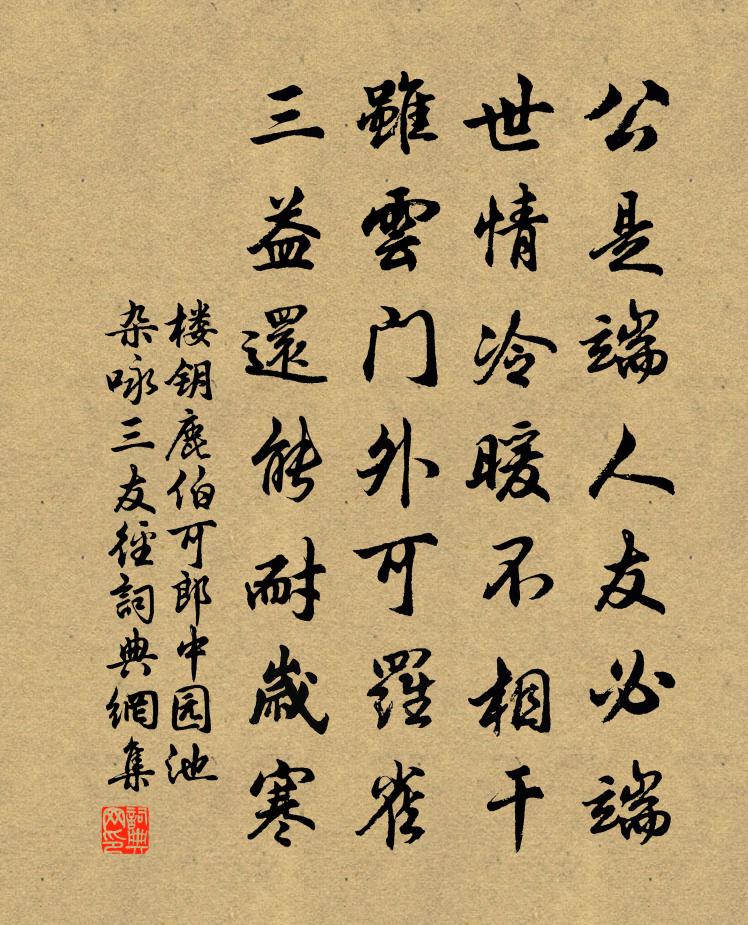 公是端人友必端
世情冷暖不相干
雖雲門外可羅雀
三益還能耐歲寒
楼钥鹿伯可郎中园池
杂咏三友径詞典網集
詞典网印